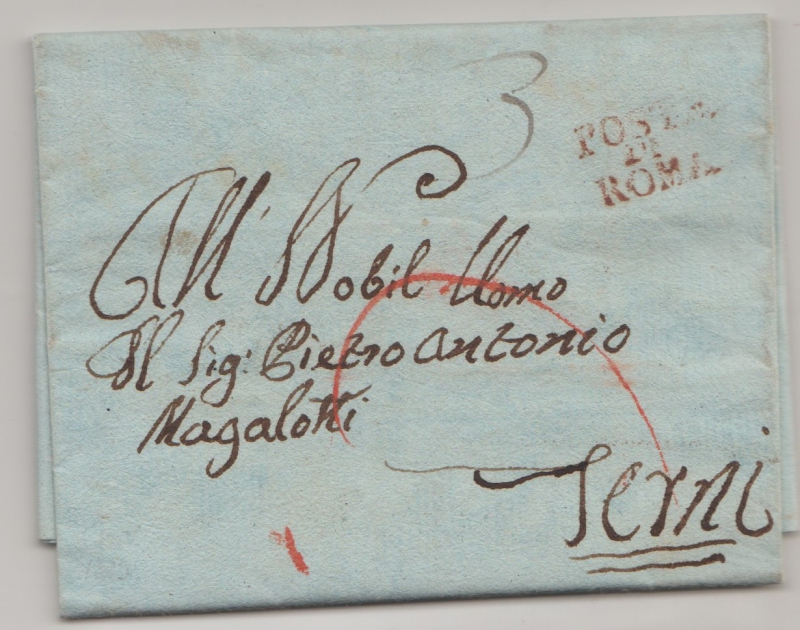 3
POSTA
DI
ROMA
All' Nobil Uomo
Il Sig: Pietro Antonio
Magalotti
Terni